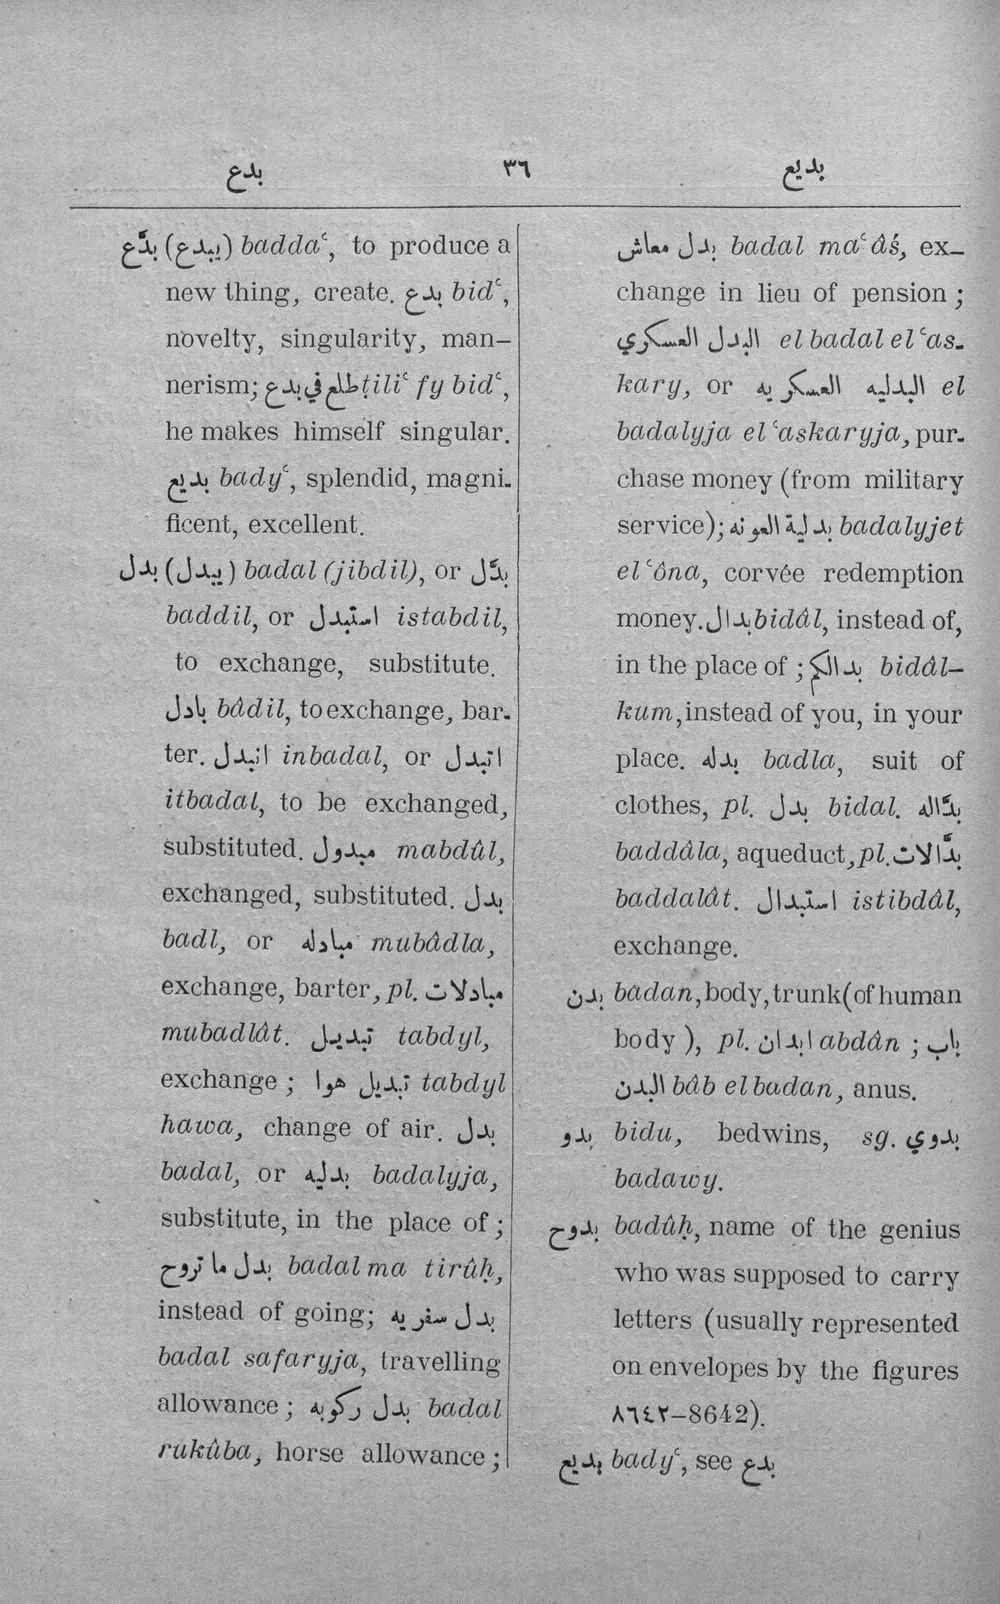 بدع ٣٦ بديع
بدَّع (يبدع) badda‘, to produce a
new thing, create. بدع bid‘,
novelty, singularity, man–
nerism; طلع في بدع ṭili‘ fy bid‘,
he makes himself singular.
بديع bady‘, splendid, magni-
ficent, excellent.
بدل (يبدل) badal (jibdil), or بدَّل
baddil, or استبدل istabdil,
to exchange, substitute.
بادل bâdil, to exchange, bar-
ter. انبدل inbadal, or اتبدل
itbadal, to be exchanged,
substituted. مبدول mabdûl,
exchanged, substituted. بدل
badl, or مبادله mubâdla,
exchange, barter, pl. مبادلات
mubadlât. تبديل tabdyl,
exchange ; تبديل هوا tabdyl
hawa, change of air. بدل
badal, or بدليه badalyja,
substitute, in the place of ;
بدل ما تروح badal ma tirûḥ,
instead of going; بدل سفريه
badal safaryja, travelling
allowance ; بدل ركوبه badal
rukûba, horse allowance ;
بدل معاش badal ma‘âś, ex–
change in lieu of pension ;
البدل العسكري el badal el ‘as-
kary, or البدليه العسكريه el
badalyja el ‘askaryja, pur-
chase money (from military
service); بدلية العونه badalyjet
el ‘ôna, corvée redemption
money. بدال bidâl, instead of,
in the place of ; بدالكم bidâl–
kum, instead of you, in your
place. بدله badla, suit of
clothes, pl. بدل bidal. بدَّاله
baddâla, aqueduct, pl. بدَّالات
baddalât. استبدال istibdâl,
exchange.
بدن badan, body, trunk (of human
body ), pl. ابدان abdân ; باب
البدن bâb el badan, anus.
بدو bidu, bedwins, sg. بدوي
badawy.
بدوح badûḥ, name of the genius
who was supposed to carry
letters (usually represented
on envelopes by the figures
٨٦٤٢–8642).
بديع bady‘, see بدع